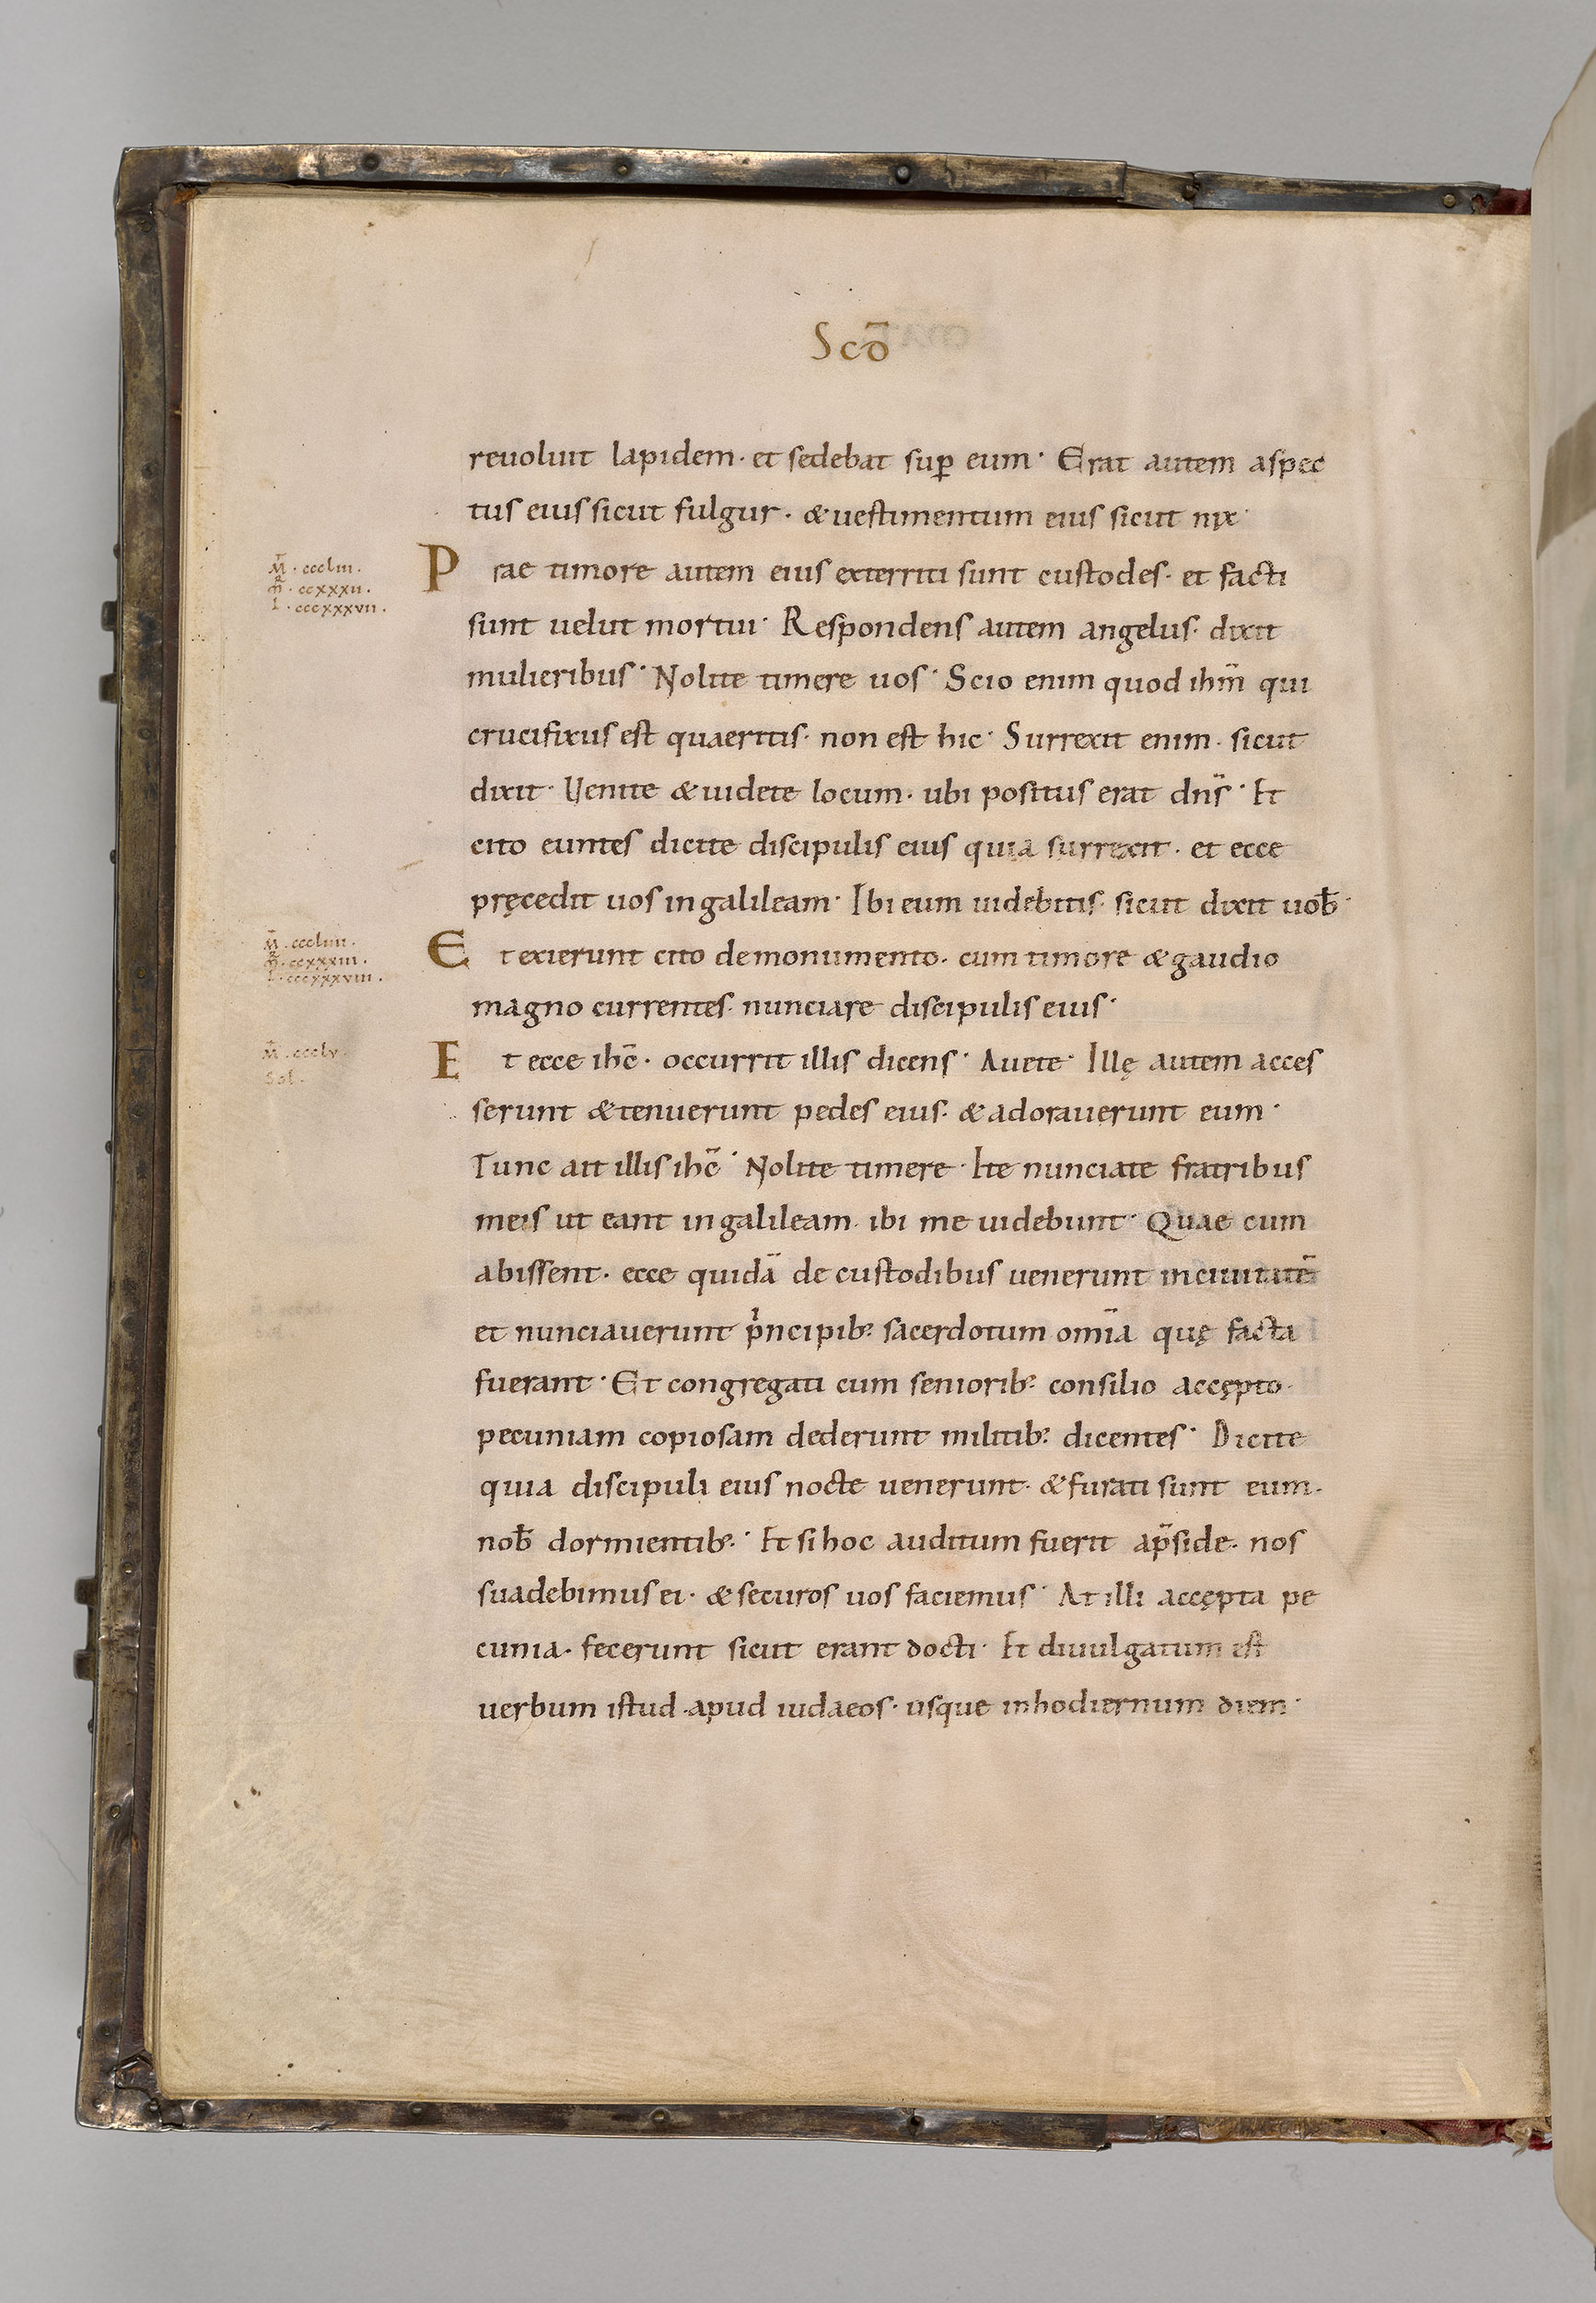 Scd̄
reuoluit lapidem· et sedebat suꝑ eum· Erat autem aspec
tus eius sicut fulgur· & uestimentum eius sicut nix·
M̄· cccliii·
m̄r· ccxxxii·
l· cccxxxvii·
Prae timore autem eius exterriti sunt custodes· et facti
sunt uelut mortui· Respondens autem angelus· dixit
mulieribus· Nolite timere uos· Scio enim quod ihm̄ qui
crucifixus est quaeritis· non est hic· Surrexit enim· sicut
dixit· Uenite & uidete locum· ubi positus erat dn̄s· Et
cito euntes dicite discipulis eius quia surrexit· et ecce
pręcedit uos in galileam· Ibi eum uidebitis· sicut dixit uob̄·
M̄· cccliiii·
m̄r· ccxxxiii·
l· cccxxxviii·
Et exierunt cito de monumento· cum timore & gaudio
magno currentes· nunciare discipulis eius·
M̄· ccclv·
Sol·
Et ecce ihc̄· occurrit illis dicens· Auete· Illę autem acces
serunt & tenuerunt pedes eius· & adorauerunt eum·
Tunc ait illis ihc̄· Nolite timere· Ite nunciate fratribus
meis ut eant in galileam· ibi me uidebunt· Quae cum
abissent· ecce quidā de custodibus uenerunt in ciuitatē
et nunciauerunt pͥncipib; sacerdotum om̄ia quę facta
fuerant· Et congregati cum seniorib; consilio accępto·
pecuniam copiosam dederunt militib; dicentes· Dicite
quia discipuli eius nocte uenerunt· & furati sunt eum·
nob̄ dormientib;· Et si hoc auditum fuerit ap̄side· nos
suadebimus ei· & securos uos faciemus· At illi accępta pe
cunia· fecerunt sicut erant docti· Et diuulgatum est
uerbum istud· apud iudaeos· usque in hodiernum diem·